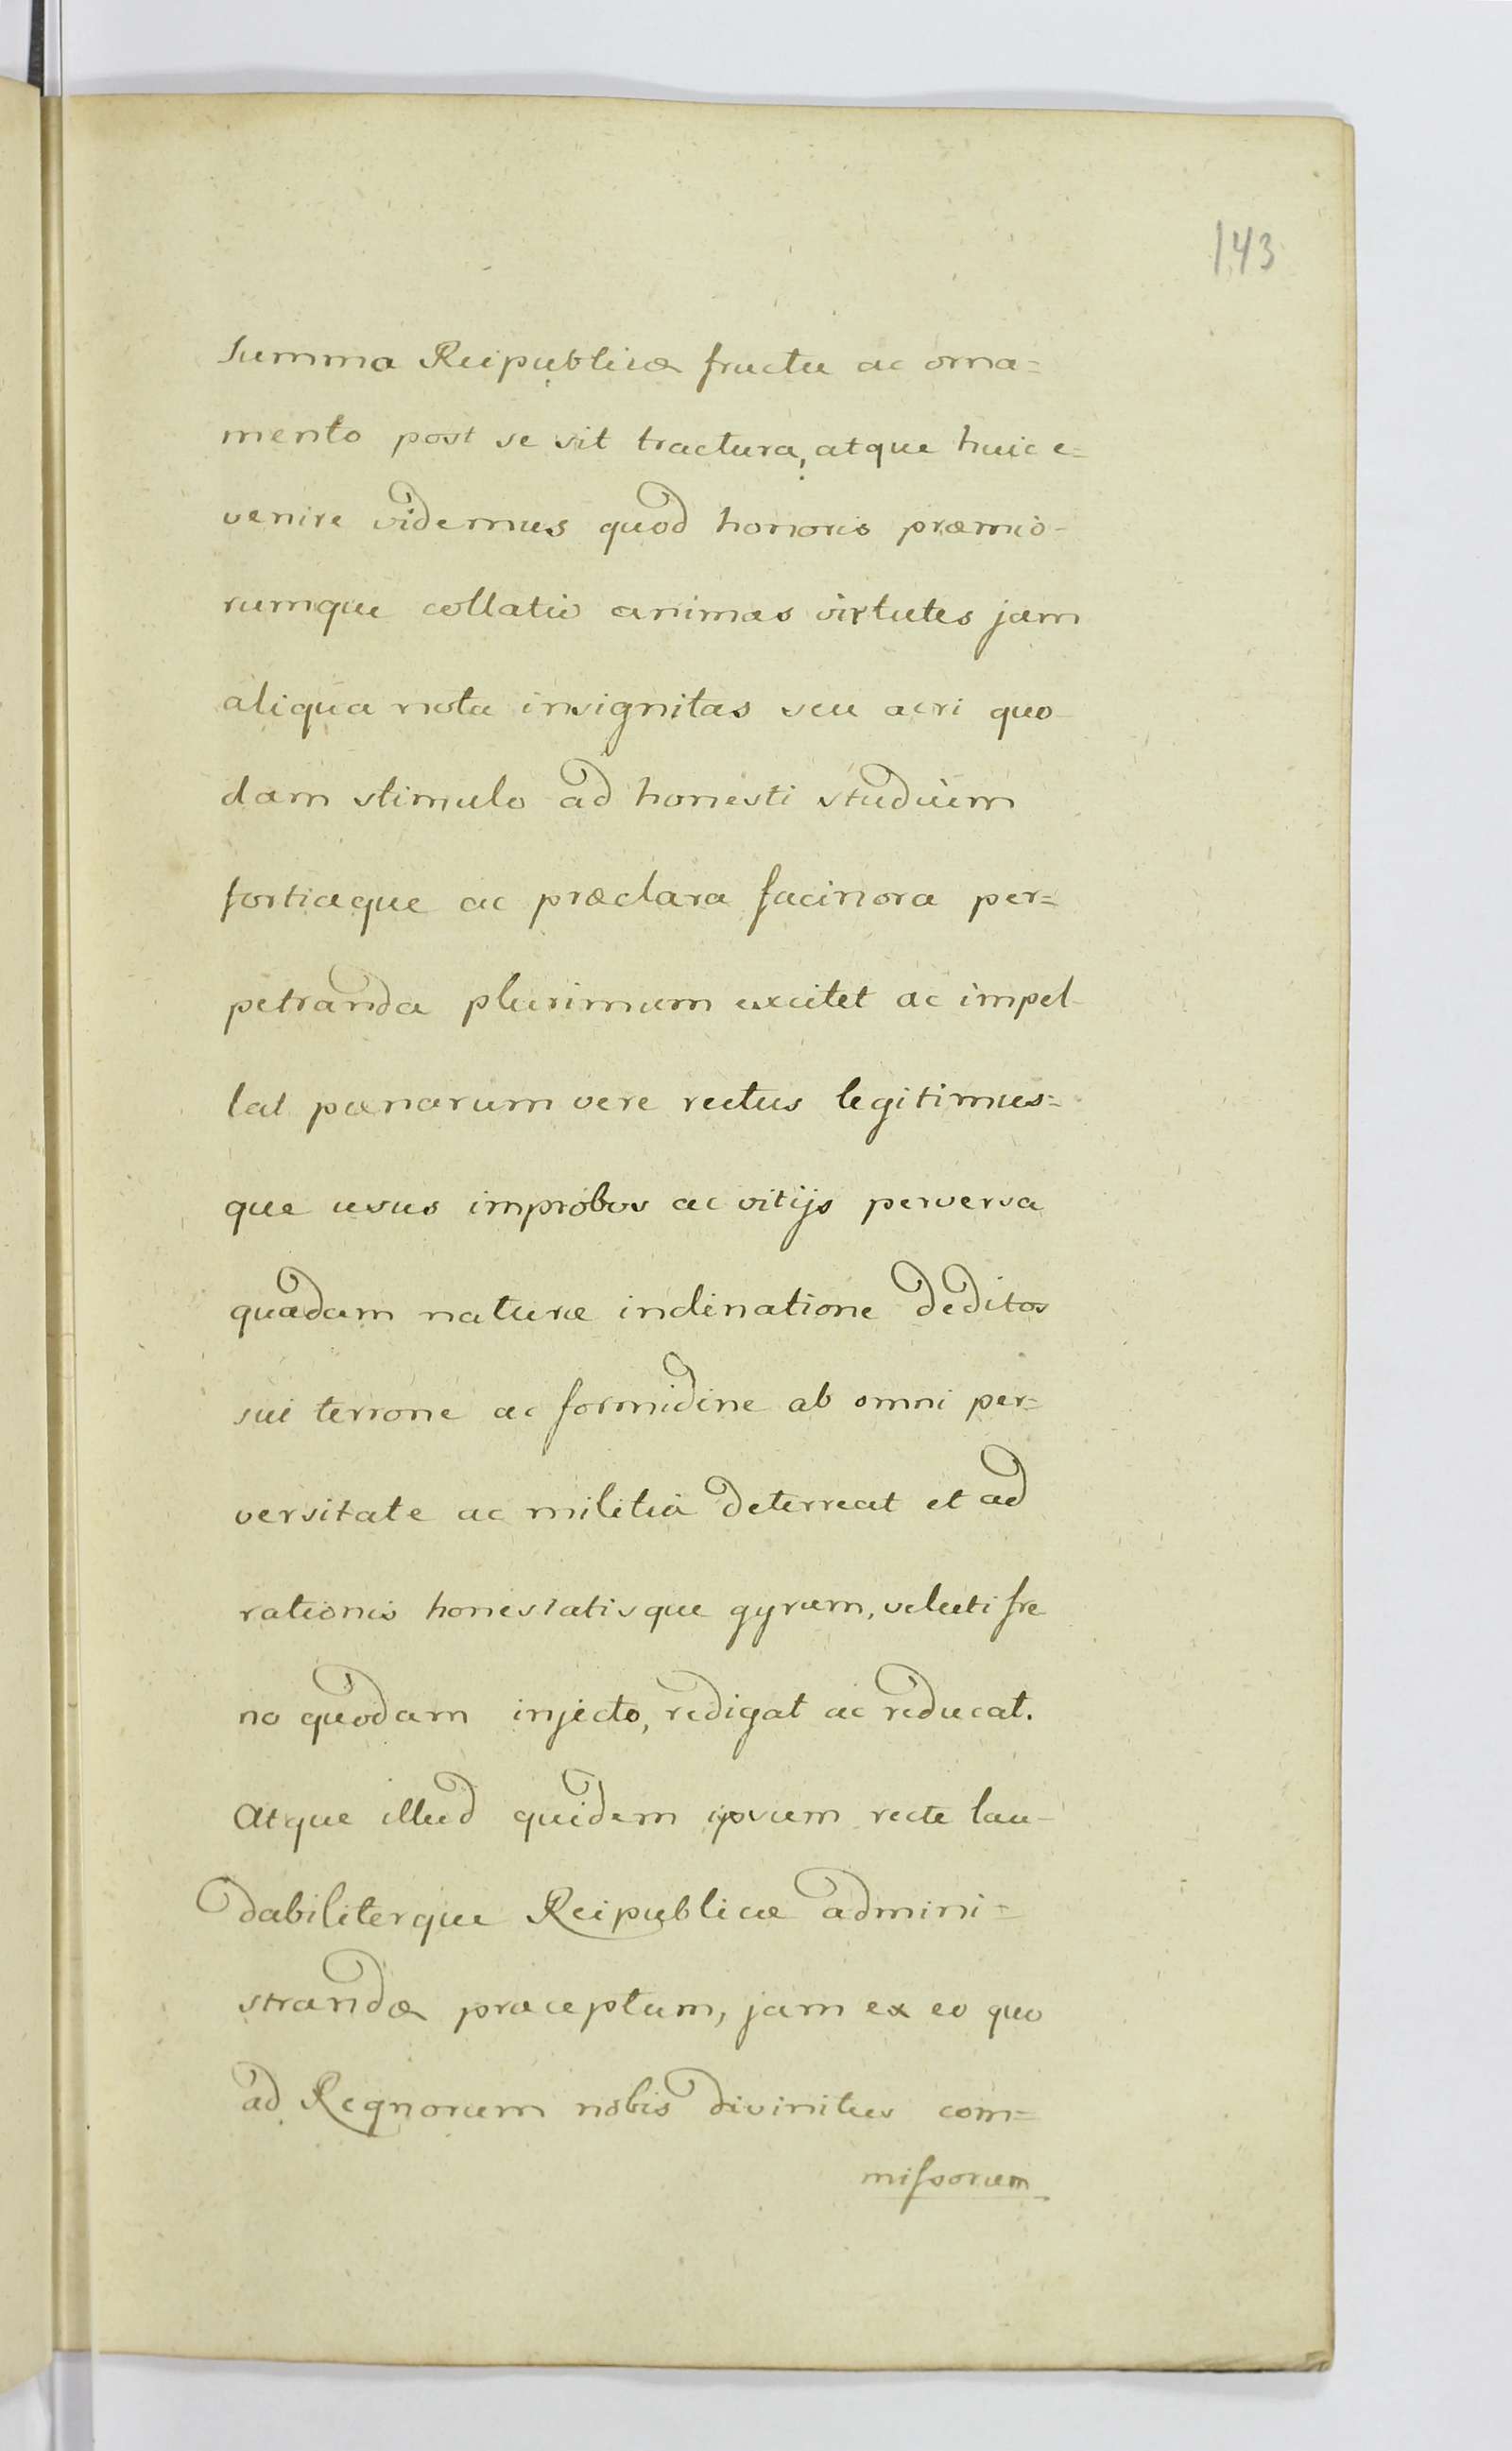 143
Summa Reipublicæ fructu ac orna=
mento post se sit tractura, atque huic e=
venire videmus quod honoris præmio-
rumque collatio animas virtutes jam
aliqua nota insignitas seu acri quo-
dam stimulo ad honesti studium
fortiaque ac præclara facinora per=
petranda plurimum excitet ac impel-
lat pœnarum vere rectus legitimus=
que usus improbos ac vitijs perversa
quædam naturæ inclinatione deditos
sui terrone ac formidine ab omni per=
versitate ac militia deterreat et ad
rationis honestatisque gyrum, veluti fre
no quodam injecto, redigat ac reducat.
Atque illud quidem ipsum recte lau-
dabiliterque Reipublicæ admini=
strandæ præceptum, jam ex eo quo
ad Regnorum nobis divinitus com=
missorum